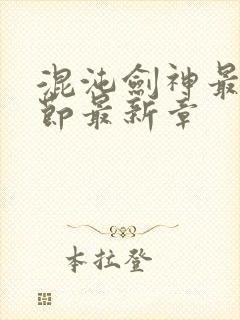 混沌劍神最
節最新章
本拉登